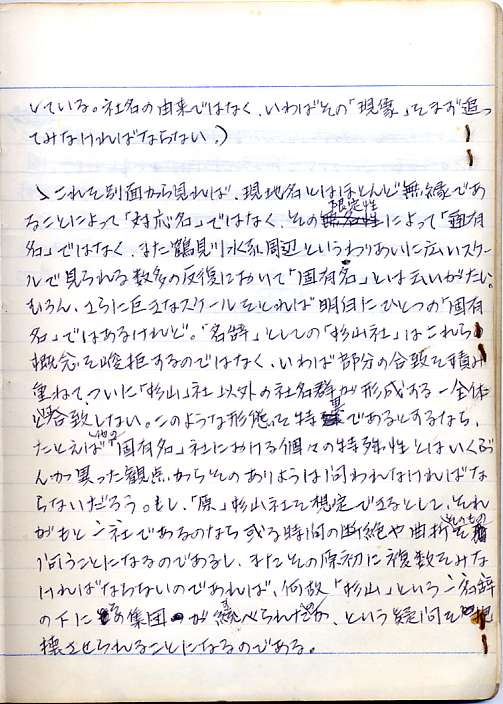 している。社名の由来ではなく、いわばその「現像」をまず追っ
てみなければならない。)
ゝこれを別面から見れば、現地名とはほとんど無縁であ
ることによって「対応名」ではなく、その限定性によって「普有
名」ではなく、また鶴見川水系周辺というわりあいに広いスケー
ルで見られる数多の反復において「固有名」とは云いがたい。
むろん、さらに巨きなスケールをとれば明白にひとつの「固有
名」ではあるけれど。「名辞」としての「杉山社」はこれら
概念を峻拒するのではなく、いわば部分の合致を積み
重ねてついに「杉山」社以外の社名群が形成する一全体
と合致しない。このような形態を特異であるとするなら、
たとえば他の「固有名」社における個々の特殊性とはいくぶ
んか異った観点からそのありようは問われなければな
らないだろう。もし、「原」杉山社を想定できるとして、それ
がもと一社であるのなら或る時間の断絶や曲折そのものを
問うことになるのであるし、またその原初に複数をみな
ければならないのであれば、何故「杉山」という一名辞
の下に集団が統べられたか、という疑問を
壊させられることになるのである。